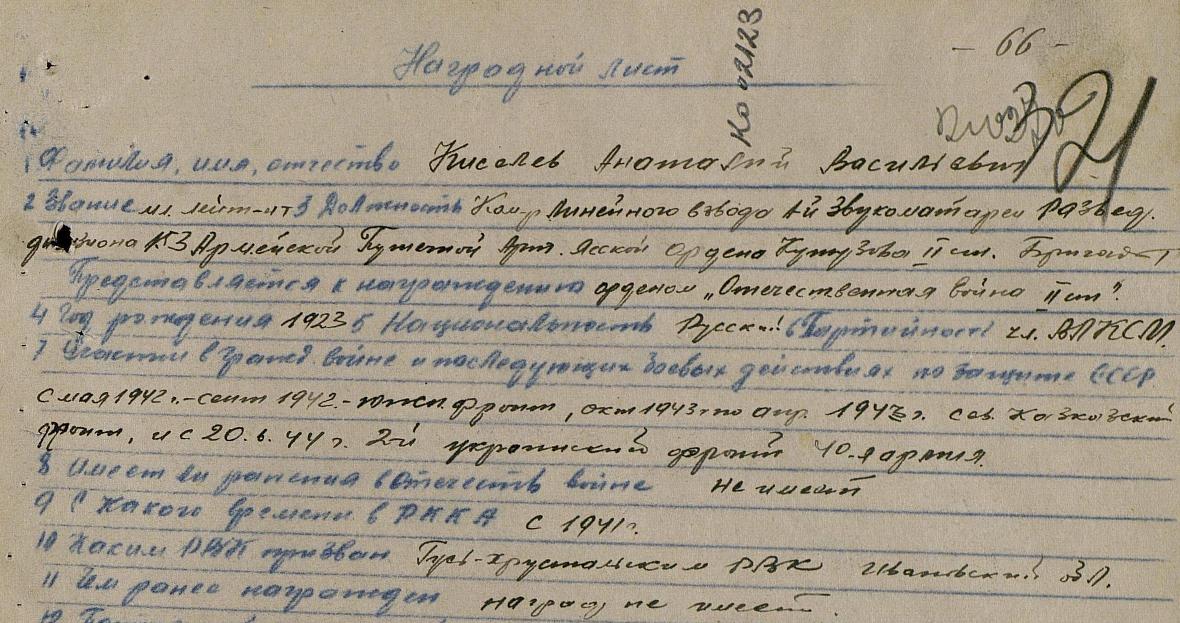 - 66 -
Ко 02123
Наградной лист
21
1 Фамилия, имя, отчество Киселев Анатолий Васильевич
2 Звание мл. лейт-нт 3 Должность Ком-р линейного взвода 1-й Звукобатареи Развед.
дивизиона Армейской Пушечной Арт. Ясской ордена Кутузова II ст. Бригады
Представляется к награждению орденом „Отечественная война II ст".
4 Год рождения 1923 5 Национальность Русский 6 Партийность чл. ВЛКСМ.
7 Участие в гражд. войне и последующих боевых действиях по защите СССР
с мая 1942 г. - сент 1942 - южн. фронт, окт 1943 г. по апр. 1943 г. сев. Кавказский
фронт, и с 20.6.44 г. 2-й украинский фронт 40-я армия.
8 Имеет ли ранения в отечеств войне не имеет
9 С какого времени в РККА с 1941 г.
10 Каким РВК призван Гусь-хрустальским РВК Ивановской обл.
11 Чем ранее награжден наград не имеет.
12